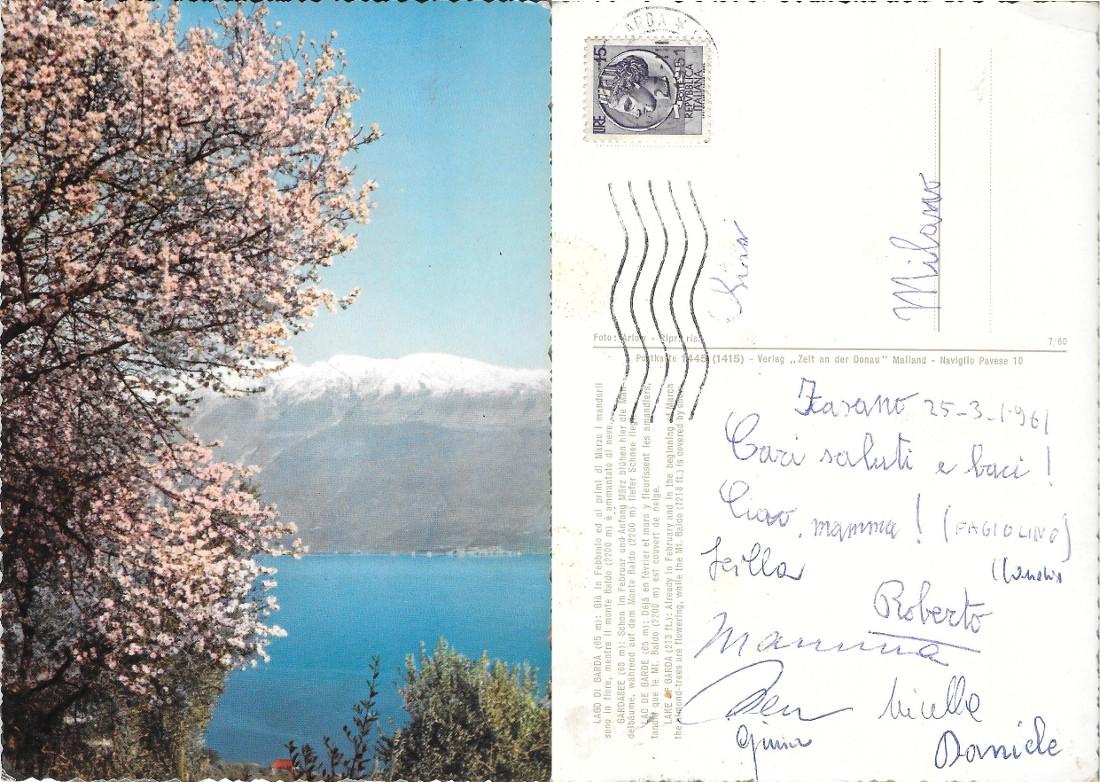 ARDA
LIRE 15
REPVBBLICA
ITALIANA
Milano
Foto:
7/60
Postkarte 1445 (1415) - Verlag „Zeit an der Donau" Mailand - Naviglio Pavese 10
LAGO DI GARDA (65 m): Già in Febbraio ed ai primi di Marzo i mandorli
sono in fiore, mentre il monte Baldo (2200 m) è ammantato di neve.
GARDASEE (65 m): Schon im Februar und Anfang März blühen hier die Man-
delbäume, während auf dem Monte Baldo (2200 m) tiefer Schnee liegt.
LAC DE GARDE (65 m): Déjà en février et mars y fleurissent les amandiers,
tandis que le Mt. Baldo (2200 m) est couvert de neige.
LAKE OF GARDA (213 ft.): Already in February and in the beginning of March
the almond-trees are flowering, while the Mt. Baldo (7218 ft.) is covered by snow.
25-3-1961
Cari saluti e baci.
Ciao mamma! (FAGIOLINO)
Roberto
Mirella
Daniele